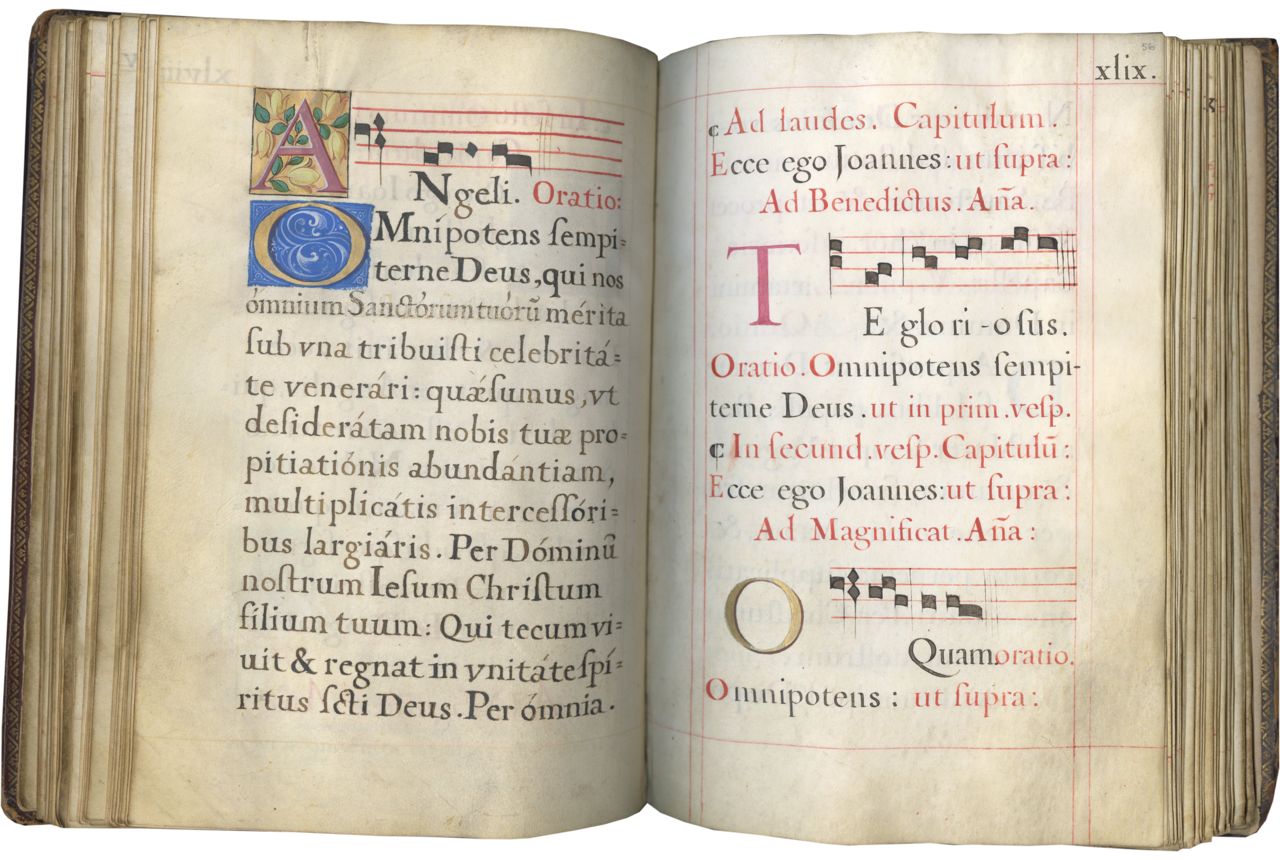 A
Ngeli. Oratio:
OMnipotens ſempi=
terne Deus, qui nos
ómnium Sanctórum tuórũ mérita
ſub vna tribuiſti celebritá=
te venerári: quǽſumus, vt
deſiderátam nobis tuæ pro=
pitiatiónis abundántiam,
multiplicátis interceſſóri=
bus largiáris. Per Dóminũ
noſtrum Ieſum Chriſtum
filium tuum: Qui tecum vi=
uit & regnat in vnitáte ſpí=
ritus ſcti Deus. Per ómnia.
56
xlix.
Ad laudes. Capitulum.
Ecce ego Joannes: ut ſupra:
Ad Benedictus. Aña.
T
E glo ri-o ſus.
Oratio. Omnipotens ſempi-
terne Deus. ut in prim. veſp.
In ſecund. veſp. Capitulũ:
Ecce ego Joannes: ut ſupra:
Ad Magnificat. Aña:
O
Quam. oratio.
Omnipotens: ut ſupra: